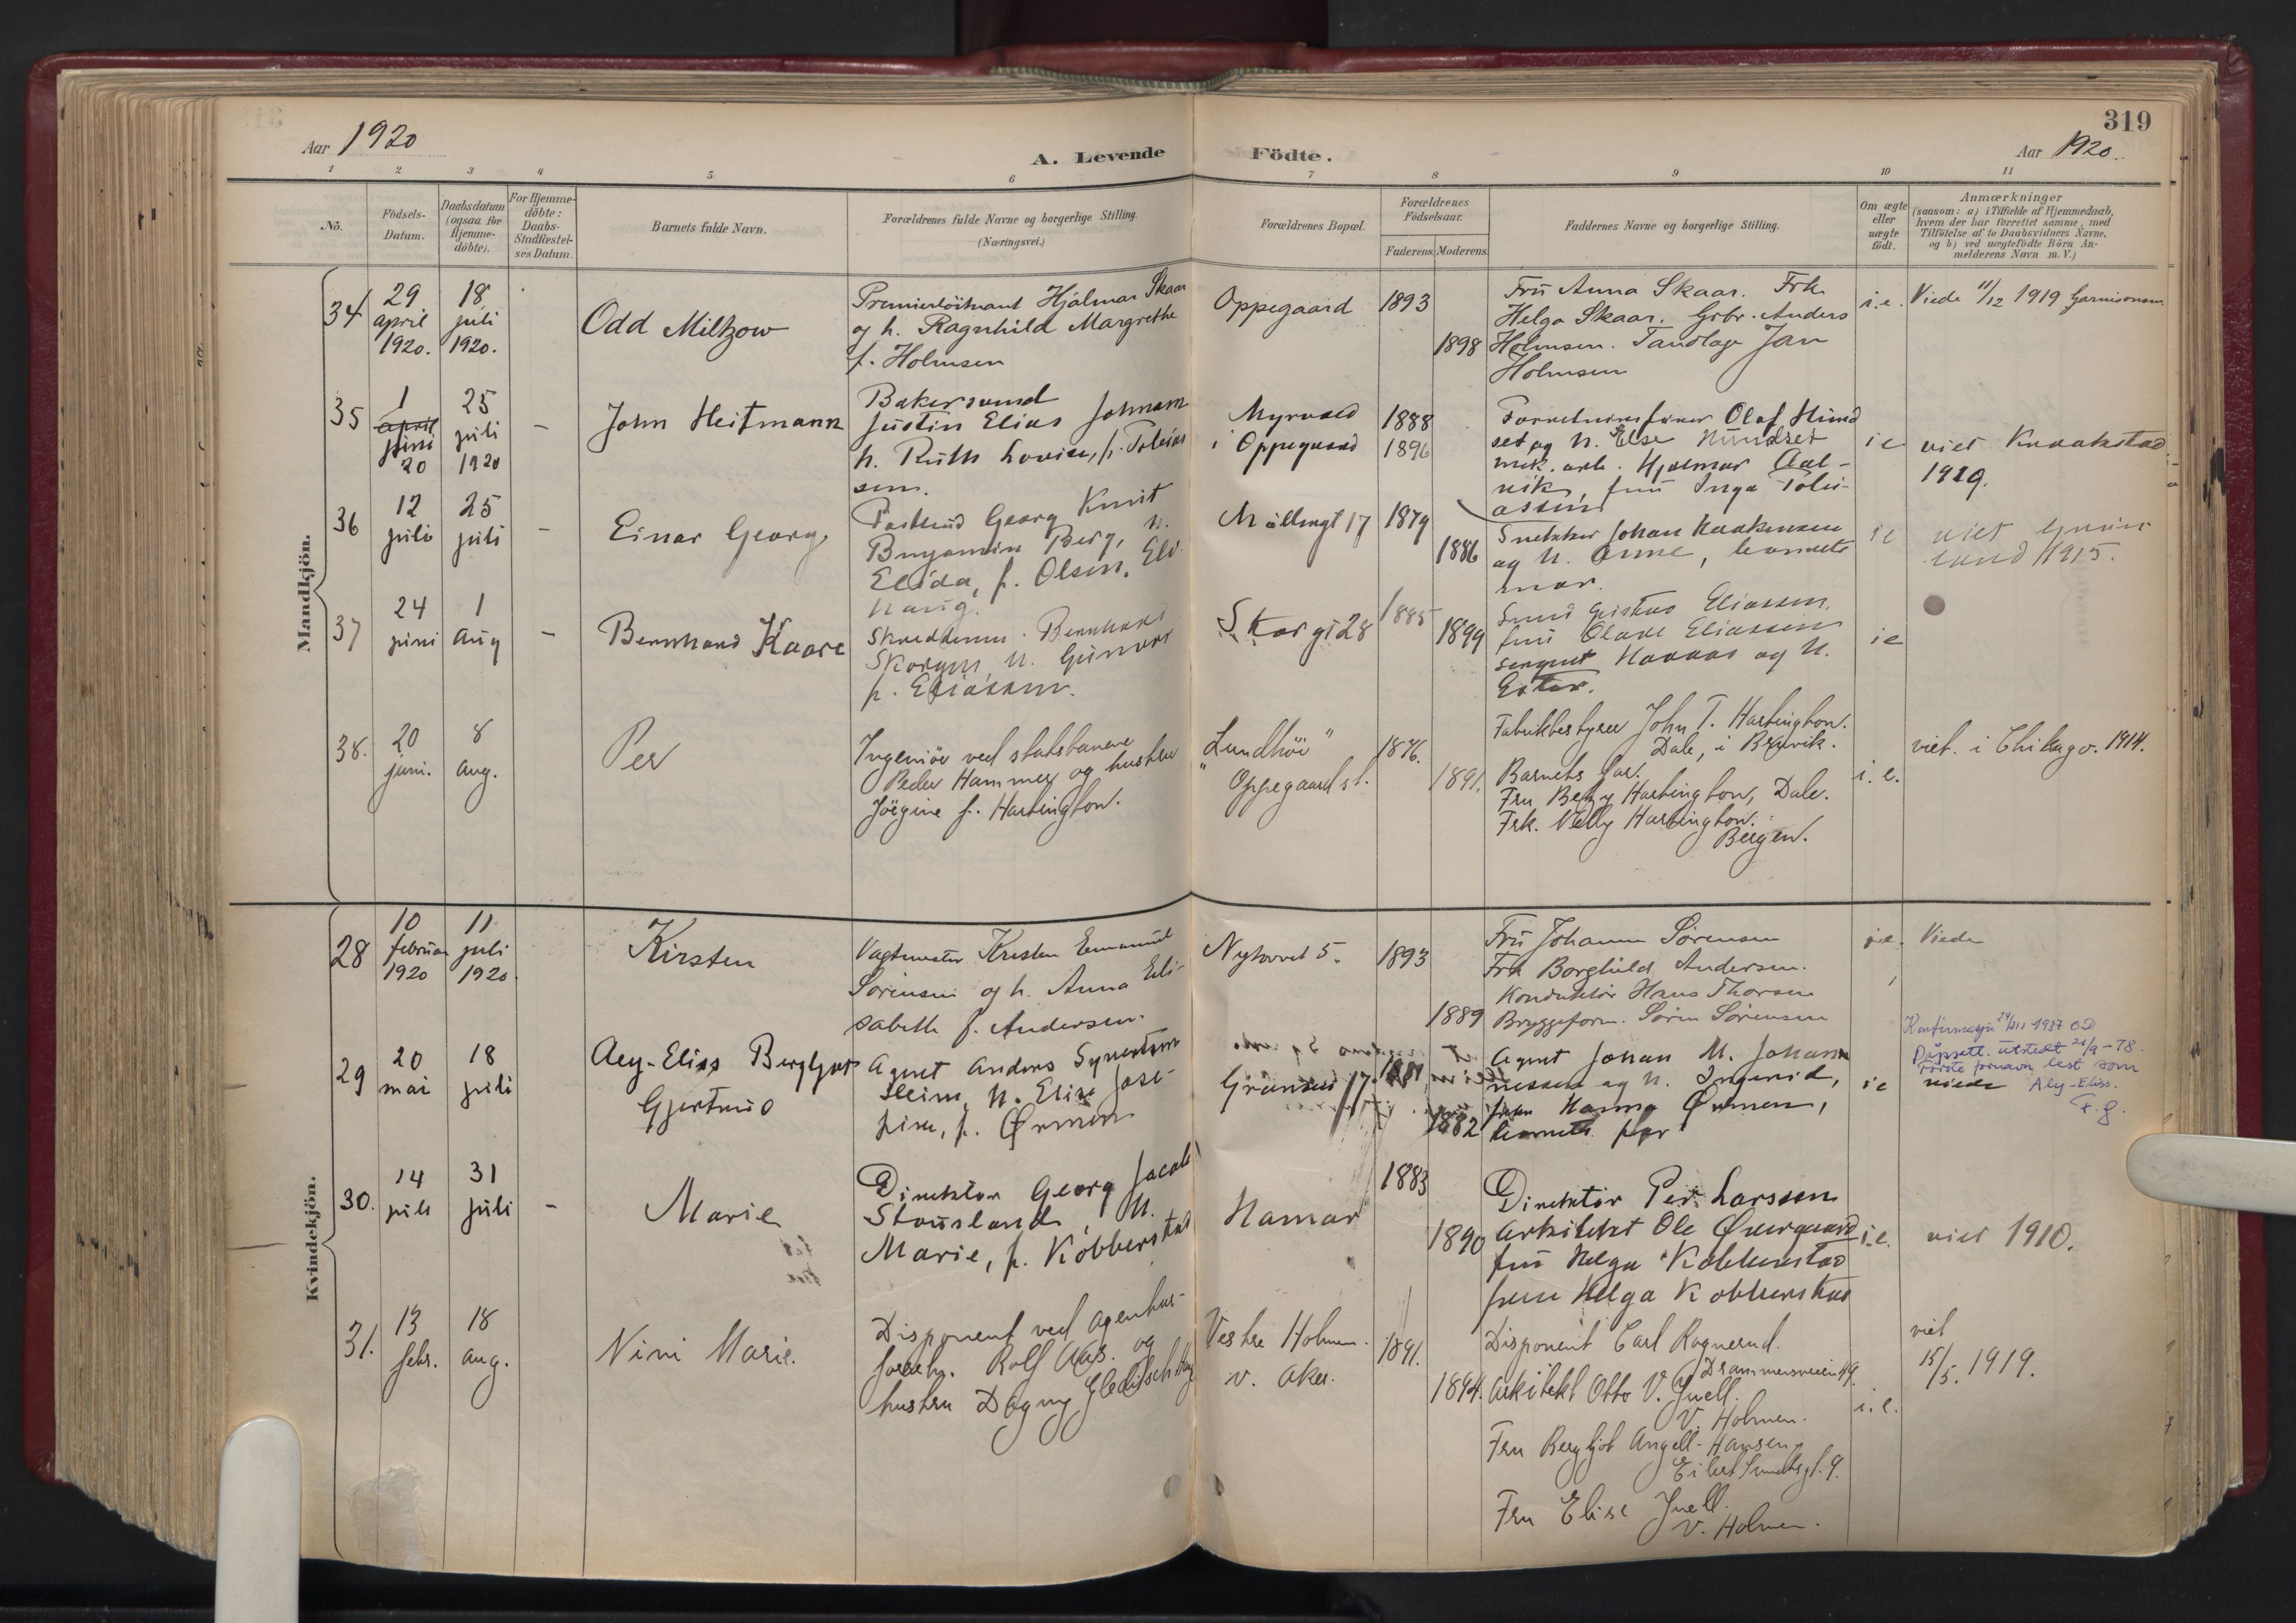 319
Aar 1920
A. Levende Födte.
Aar 1920.
1 2 3 4 5 6 7 8 9 10 11
No.
Födsels-Datum.
Daabsdatum (ogsaa for Hjemme-döbte).
For Hjemme-döbte: Daabs-Stadfæstel-ses Datum.
Barnets fulde Navn.
Forældrenes fulde Navne og borgerlige Stilling.
(Næringsvei.)
Forældrenes Bopæl.
Forældrenes Födselsaar.
Faderens. Moderens.
Faddernes Navne og borgerlige Stilling.
Om ægte eller uægte födt.
Anmærkninger
(saasom: a) i Tilfælde af Hjemmedaab,
hvem der har forrettet samme, med
Tilföielse af to Daabsvidners Navne.
og b) ved uægtefödte Börn An-
melderens Navn m. V.)
Mandkjön.
34
29 april 1920.
18 juli 1920.
Odd Miltzow
Premierlöitnant Hjalmar Skaar
og h. Ragnhild Margrethe
f. Holmsen
Oppegaard
1893
1898
Frü Anna Skaar. Frk.
Helga Skaar. Grbr. Anders
Holmsen. Tandlæge Jan
Holmsen
i.e.
Viede 11/12 1919 Garnisonsm.
35
1 april jüni 20
25 jüli 1920
-
John Heitmann
Bakersvend
Jüstin Elias Johnsen
h. Rüth Lovise, f. Tobias
sen.
Myrvold
i Oppegaard
1888
1896
Olaf Hünd
set og h. Else Hündset
mek. arb. Hjalmar Aal-
vik, frü Inga Tobi-
assen
i e
viet Kraakstad
1919.
36
12 jüli
25 jüli
-
Einar Georg
Postbüd Georg Knüt
Benjamin Berg, h.
Elida, f. Olsen, Eli
haüg.
Möllergt 17
1879
1886
Snekker Johan Haakensen
og h. Anne, barnets
mor.
i e
viet Grün
lund 1915.
37
24 jüni
1 aüg
-
Bernhard Kaare
Skreddersv. Bernhard
Skorgen, h. Günvor
f. Eliassen.
Skorgt 28
1885
1899
Smed Gustav Eliassen,
frü Olave Eliassen
sergent og h.
Ester.
i e
38.
20 juni.
8 aug.
Per
Ingeniör ved statsbanene
Peder Hammer og hustru
Jörgine f. Hartington.
"Lundhöi"
Oppegaard st.
1876.
1891.
Fabrikbestyrer John T. Hartington.
Dale, i Bruvik.
Barnets far.
Fru Betzy Hartington, Dale.
Frk. Nelly Hartington.
Bergen.
i. e.
viet. i Chikago. 1914.
Kvindekjön.
28
10 februar 1920
11 juli 1920.
Kirsten
Vagtmester Kristen Emanuel
Sörensen og h. Anna Eli-
sabeth f. Andersen.
Nytorvet 5.
1893
1889
Frü Johanne Sörensen
Frk Borghild Andersen.
Konduktör Hans Thorsen
Bryggeform. Sören Sörensen
i.e.
Viede
29
20 mai
18 jüli
Aly-Eliss Bergljot
Gjertrüd
Agent Anders Syvertsen
Heim, h. Elise Jose-
fine, f. Ørmen
Grünsen 17
1881
1882
Agent Johan M. Johan
nessen og h. Ingerid,
frk Hanna Ørmen,
barnets far
i e
viede
Konfirmasjon 24/XII 1937 OD
Dåpsatt. utstedt 21/9-78.
Første fornavn lest som
Aly-Eliss.
F.G.
30.
14 jüli
31 jüli
-
Marie
Direktör Georg Jacob
Stoüsland, h.
Marie, f. Köbberstad
Hamar
1883
1890
Direktör Per Larssen
Arkitekt Ole Øvergaard
frü Helga Kobberstad
Helga Kobberstad
i.e.
viet 1910.
31.
13 febr.
18 aug.
Nini Marie.
Disponent ved agentur-
forretn. Rolf Aas. og
hustru Dagny Gleditsch
Vestre Holmen.
v. Aker.
1891.
1894.
Disponent Carl Rognerud.
Drammensveien 49.
Arkitekt Otto V. Juell.
V. Holmen.
Fru Bergljot Angell-Hansen,
Eilert Sundtsgt. 9.
Fru Elise Juell.
V. Holmen.
i. e.
viet
15/5. 1919.